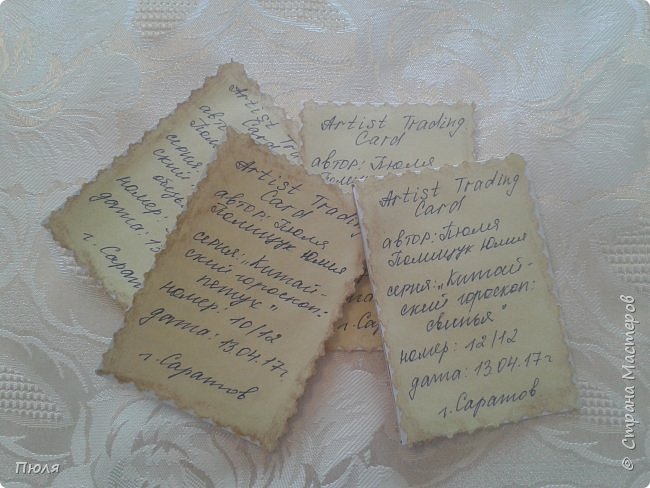 Artist Trading
Card
автор:
серия
ский
номер:
дата: 13
г. Саратов
Artist Trading
Card
автор: Пюля
г. Сарат
Artist Trading
Card
автор: Пюля
Полищук Юлия
серия: „Китай-
ский гороскоп:
петух"
номер: 10/12
дата: 13.04.17г
г. Саратов
Artist Trading
Card
автор: Пюля
Полищук Юлия
серия: „Китай-
ский гороскоп:
свинья"
номер: 12/12
дата: 13.04.17г
г. Саратов
Пюля
© Страна Мастеров